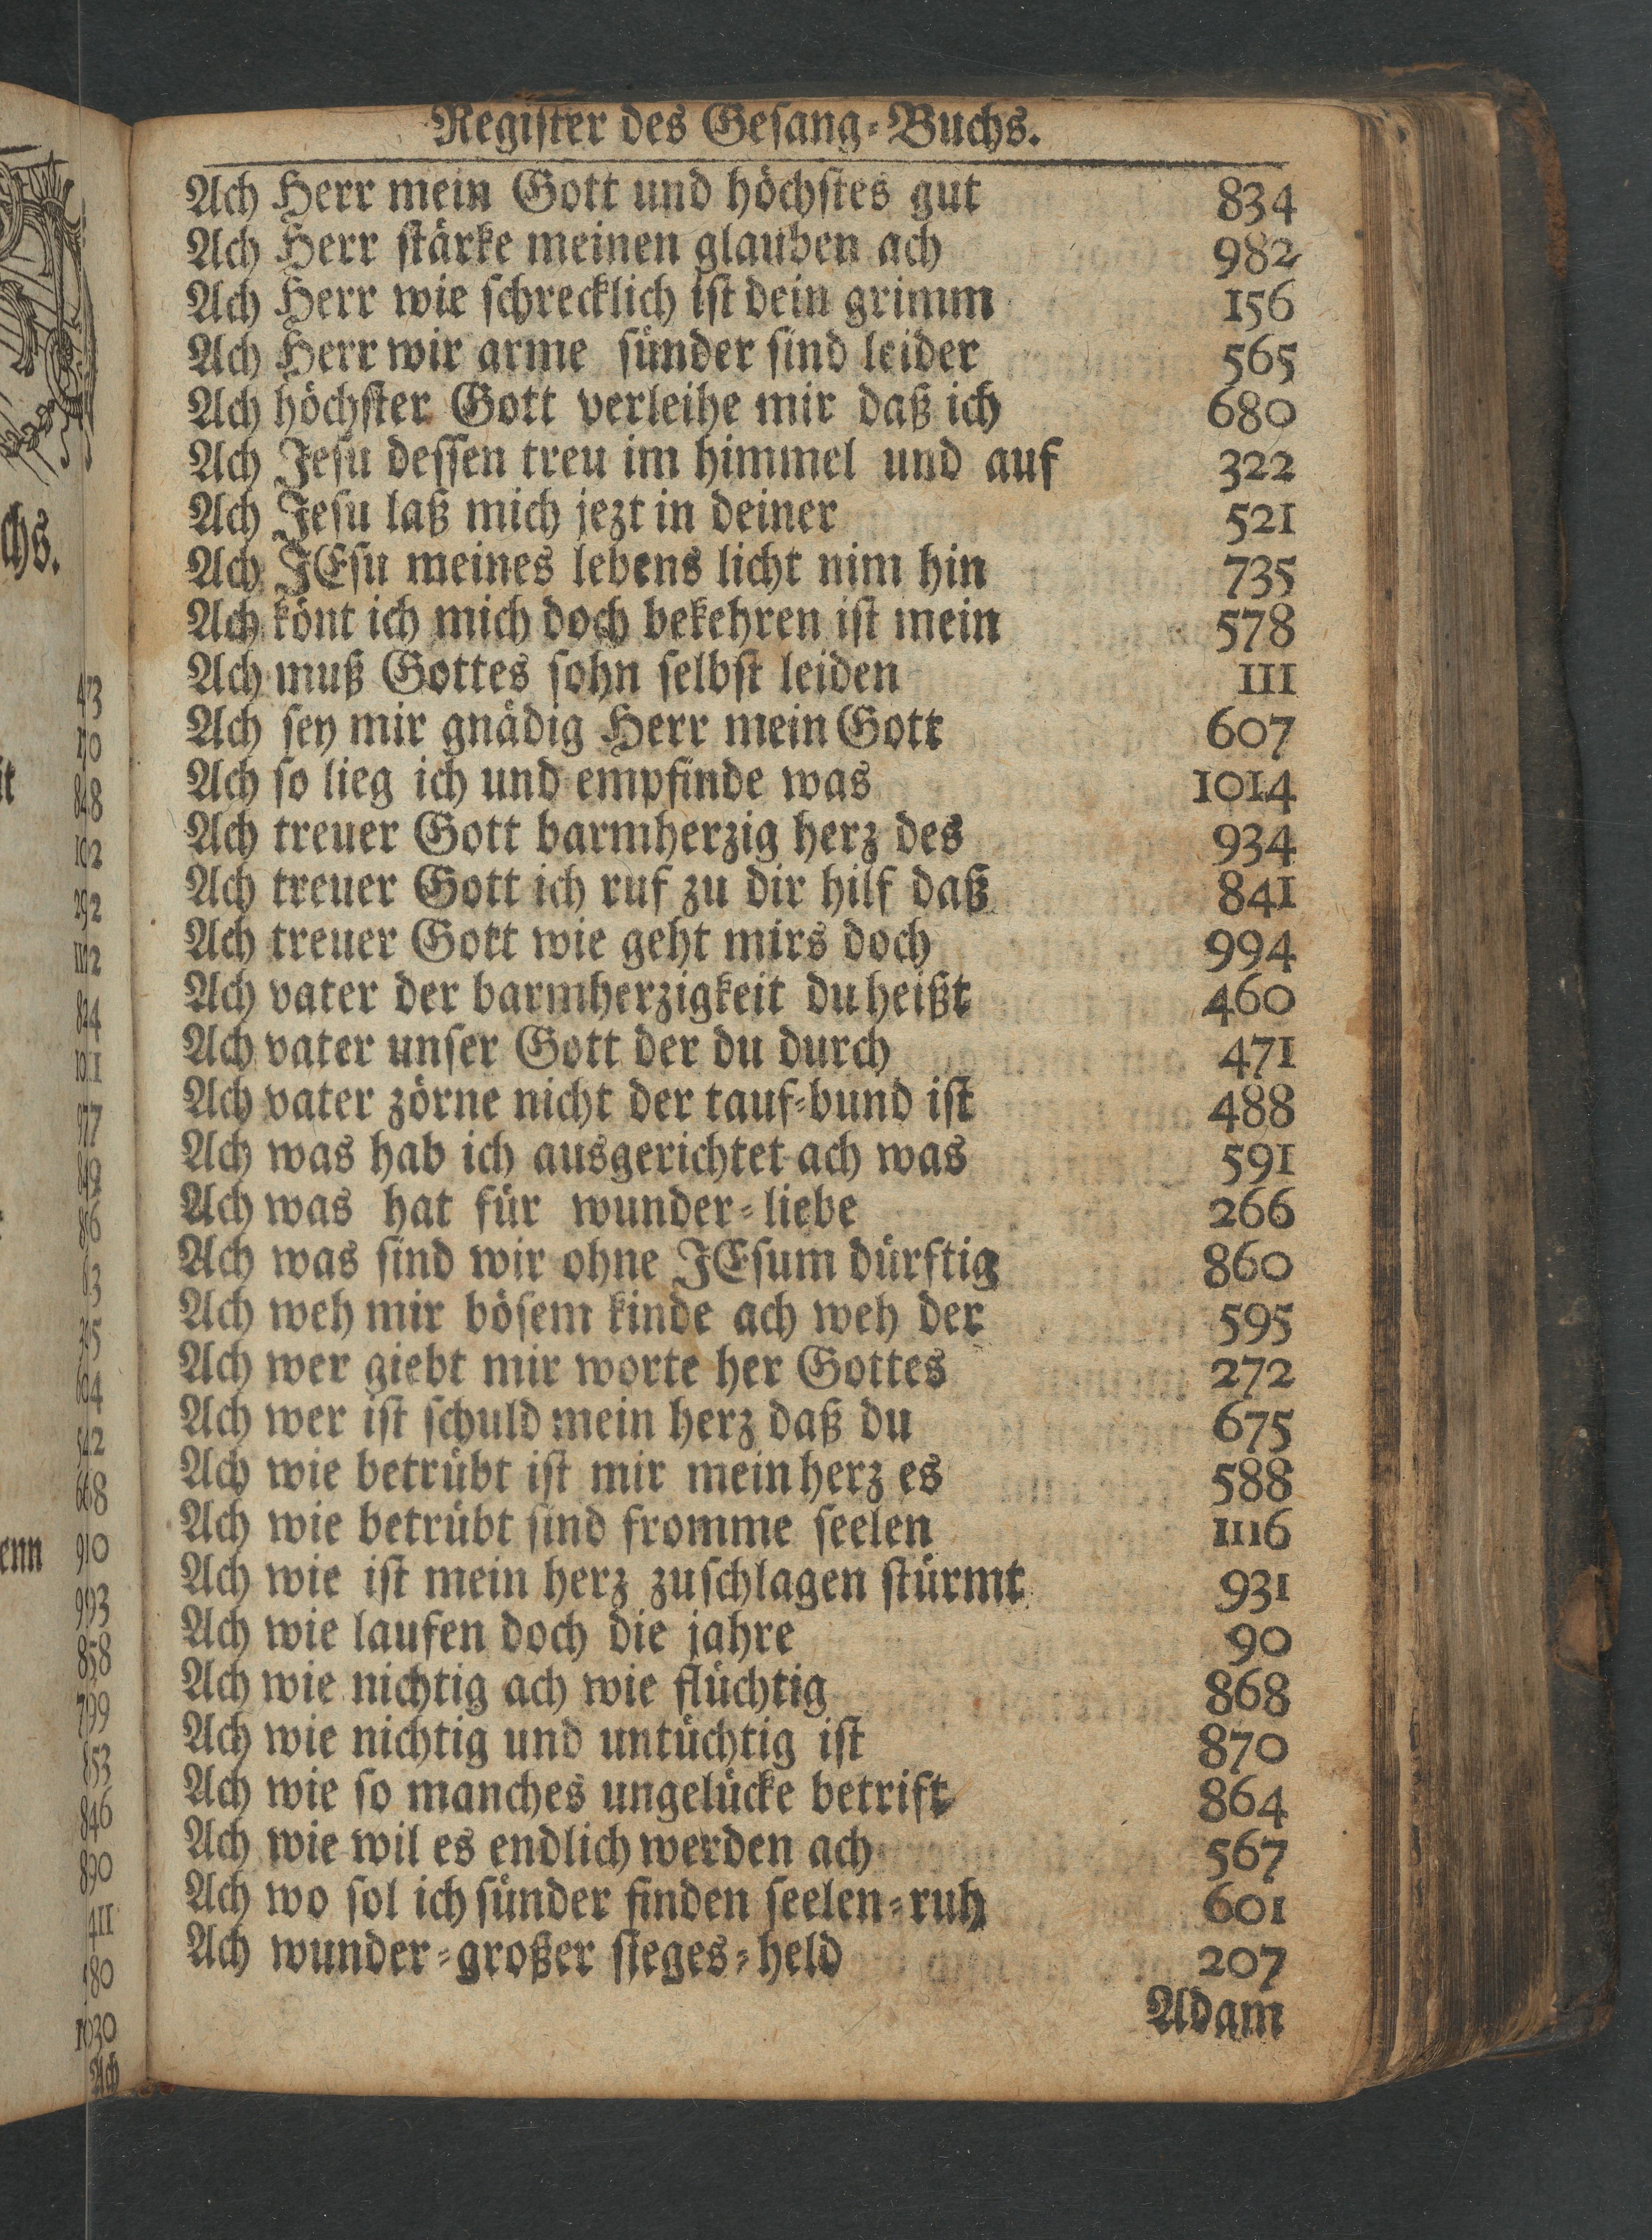 Register des Gesang-Buchs.
Ach Herr mein Gott und höchstes gut 834
Ach Herr stärke meinen glauben ach 982
Ach Herr wie schrecklich ist dein grimm 156
Ach Herr wir arme sünder sind leider 565
Ach höchster Gott verleihe mir daß ich 680
Ach Jesu dessen treu im himmel und auf 322
Ach Jesu laß mich jezt in deiner 521
Ach JEsu meines lebens licht nim hin 735
Ach könt ich mich doch bekehren ist mein 578
Ach muß Gottes sohn selbst leiden 111
Ach sey mir gnädig Herr mein Gott 607
Ach so lieg ich und empfinde was 1014
Ach treuer Gott barmherzig herz des 934
Ach treuer Gott ich ruf zu dir hilf daß 841
Ach treuer Gott wie geht mirs doch 994
Ach vater der barmherzigkeit du heißt 460
Ach vater unser Gott der du durch 471
Ach vater zörne nicht der tauf-bund ist 488
Ach was hab ich ausgerichtet ach was 591
Ach was hat für wunder-liebe 266
Ach was sind wir ohne JEsum dürftig 860
Ach weh mir bösem kinde ach weh der 595
Ach wer giebt mir worte her Gottes 272
Ach wer ist schuld mein herz daß du 675
Ach wie betrübt ist mir mein herz es 588
Ach wie betrübt sind fromme seelen 1116
Ach wie ist mein herz zuschlagen stürmt 931
Ach wie laufen doch die jahre 90
Ach wie nichtig ach wie flüchtig 868
Ach wie nichtig und untüchtig ist 870
Ach wie so manches ungelücke betrift 864
Ach wie wil es endlich werden ach 567
Ach wo sol ich sünder finden seelen-ruh 601
Ach wunder-großer sieges-held 207
Adam